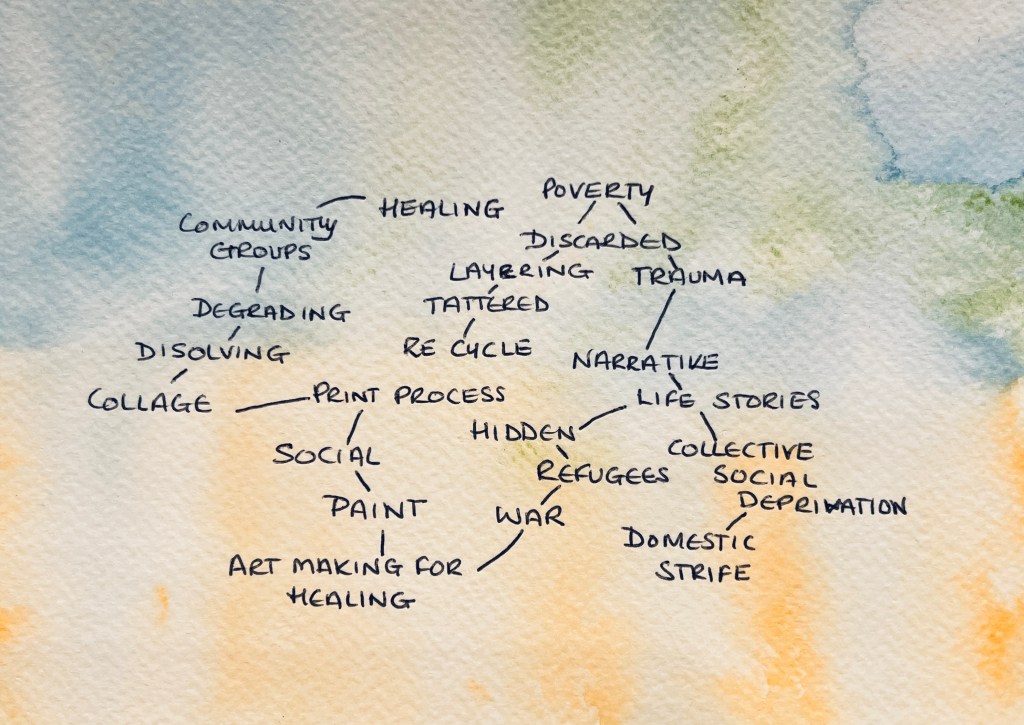 HEALING
POVERTY
COMMUNITY
GROUPS
DISCARDED
LAYERING
TRAUMA
DEGRADING
TATTERED
DISOLVING
RE CYCLE
NARRATIVE
COLLAGE
PRINT PROCESS
LIFE STORIES
HIDDEN
SOCIAL
COLLECTIVE
SOCIAL
DEPRIVATION
REFUGEES
PAINT
WAR
DOMESTIC
STRIFE
ART MAKING FOR
HEALING